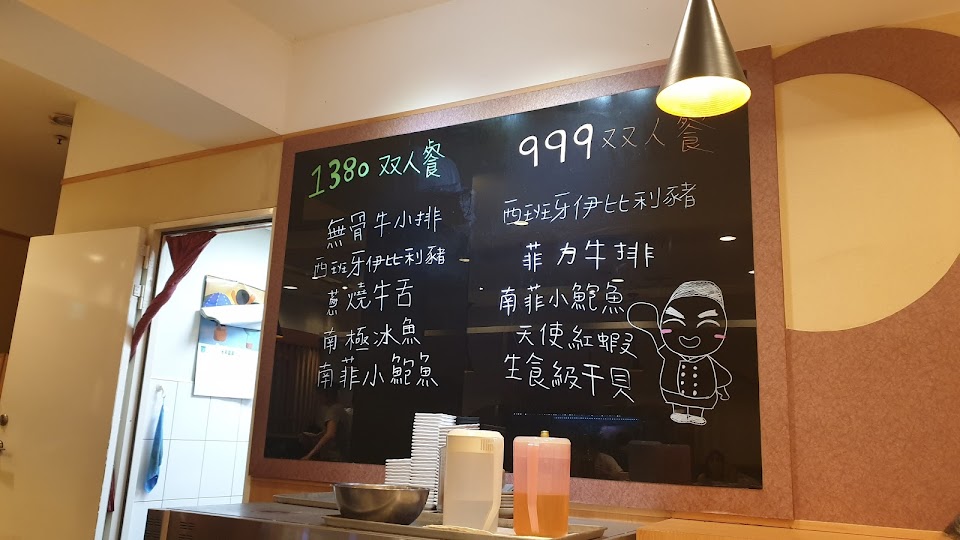 1380 双人餐
無骨牛小排
西班牙伊比利豬
蔥燒牛舌
南極冰魚
南菲小鮑魚
999 双人餐
西班牙伊比利豬
菲力牛排
南菲小鮑魚
天使紅蝦
生食級干貝